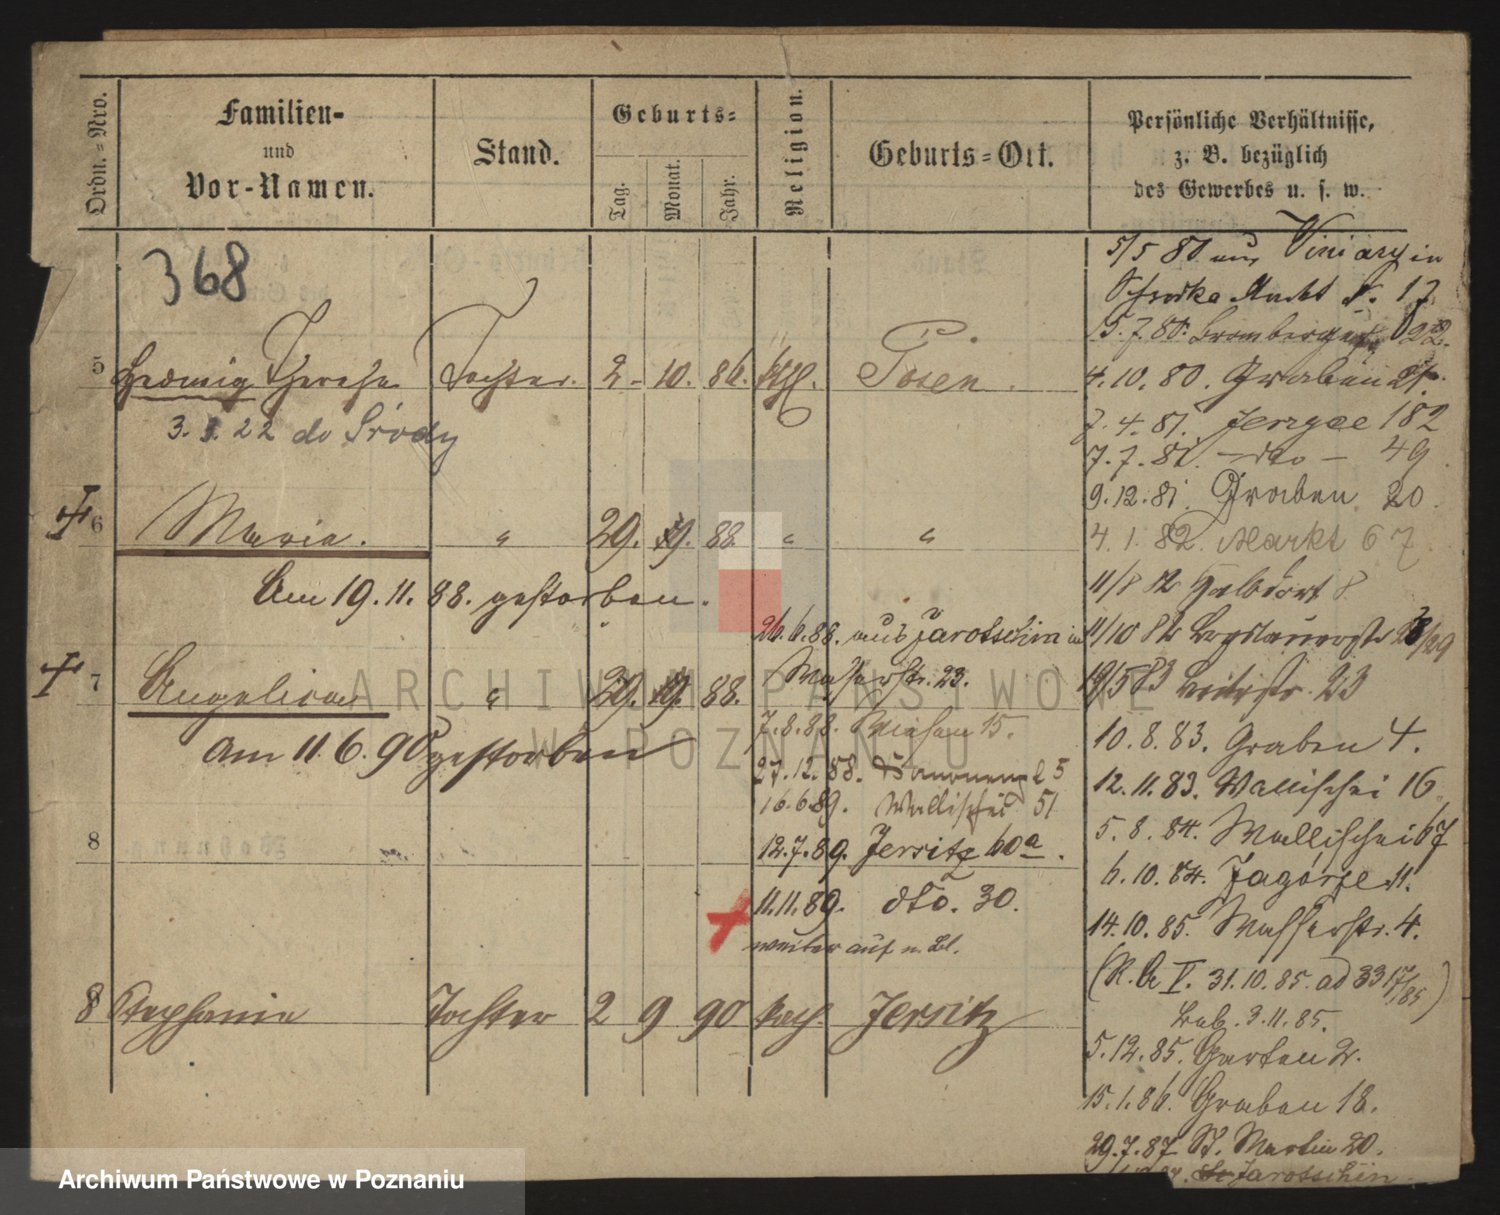 Ordn.=Nro.
Familien-
und
Vor-Namen.
Stand.
Geburts=
Tag.
Monat.
Jahr.
Religion.
Geburts=Ort.
Persönliche Verhältnisse,
z. B. bezüglich
des Gewerbes u. s. w.
368
5 Hedwig Therese Tochter. 2. 10. 86. kth. Posen.
3. 1. 22 do Środy
6 Maria. " 29. 9. 88. " "
Am 19. 11. 88. gestorben.
7 Angelica " 29. 9. 88.
Am 11. 6. 90 gestorben
8
8 Stephanie Tochter 2 9 90 kath. Jersitz
26. 6. 88. aus Jarotschin in
Wasserstr. 23.
7. 8. 88. Wiesen 15.
27. 12. 88. 25
16. 6 89. Wallischei 51
12. 7. 89. Jersitz 60a.
11. 11. 89. dto. 30.
weiter auf n. Bl.
5/5 80 aus Viniary in
Markt 17
5. 7. 80. Bromberger 22.
4. 10. 80. Graben
7. 4. 81. Jerzyce 182
7. 7. 81. - dto - 49
9. 12. 81. Graben 20.
4. 1. 82. Markt 67.
11/8 82 Halbdorf 8
11/10 82 /29
19/5 83 Breitestr. 23
10. 8. 83. Graben 4.
12. 11. 83. Wallischei 16.
5. 8. 84. Wallischei 67
6. 10. 84. Zagórze 11.
14. 10. 85. Wasserstr. 4.
(R. A V. 31. 10. 85. ad 33 17/85)
Leb. 3. 11. 85.
5. 12. 85. Garten 2.
15. 1. 86. Graben 18.
29. 7. 87. St. Martin 20.
Jarotschin
ARCHIWUM PAŃSTWOWE
W POZNANIU
Archiwum Państwowe w Poznaniu